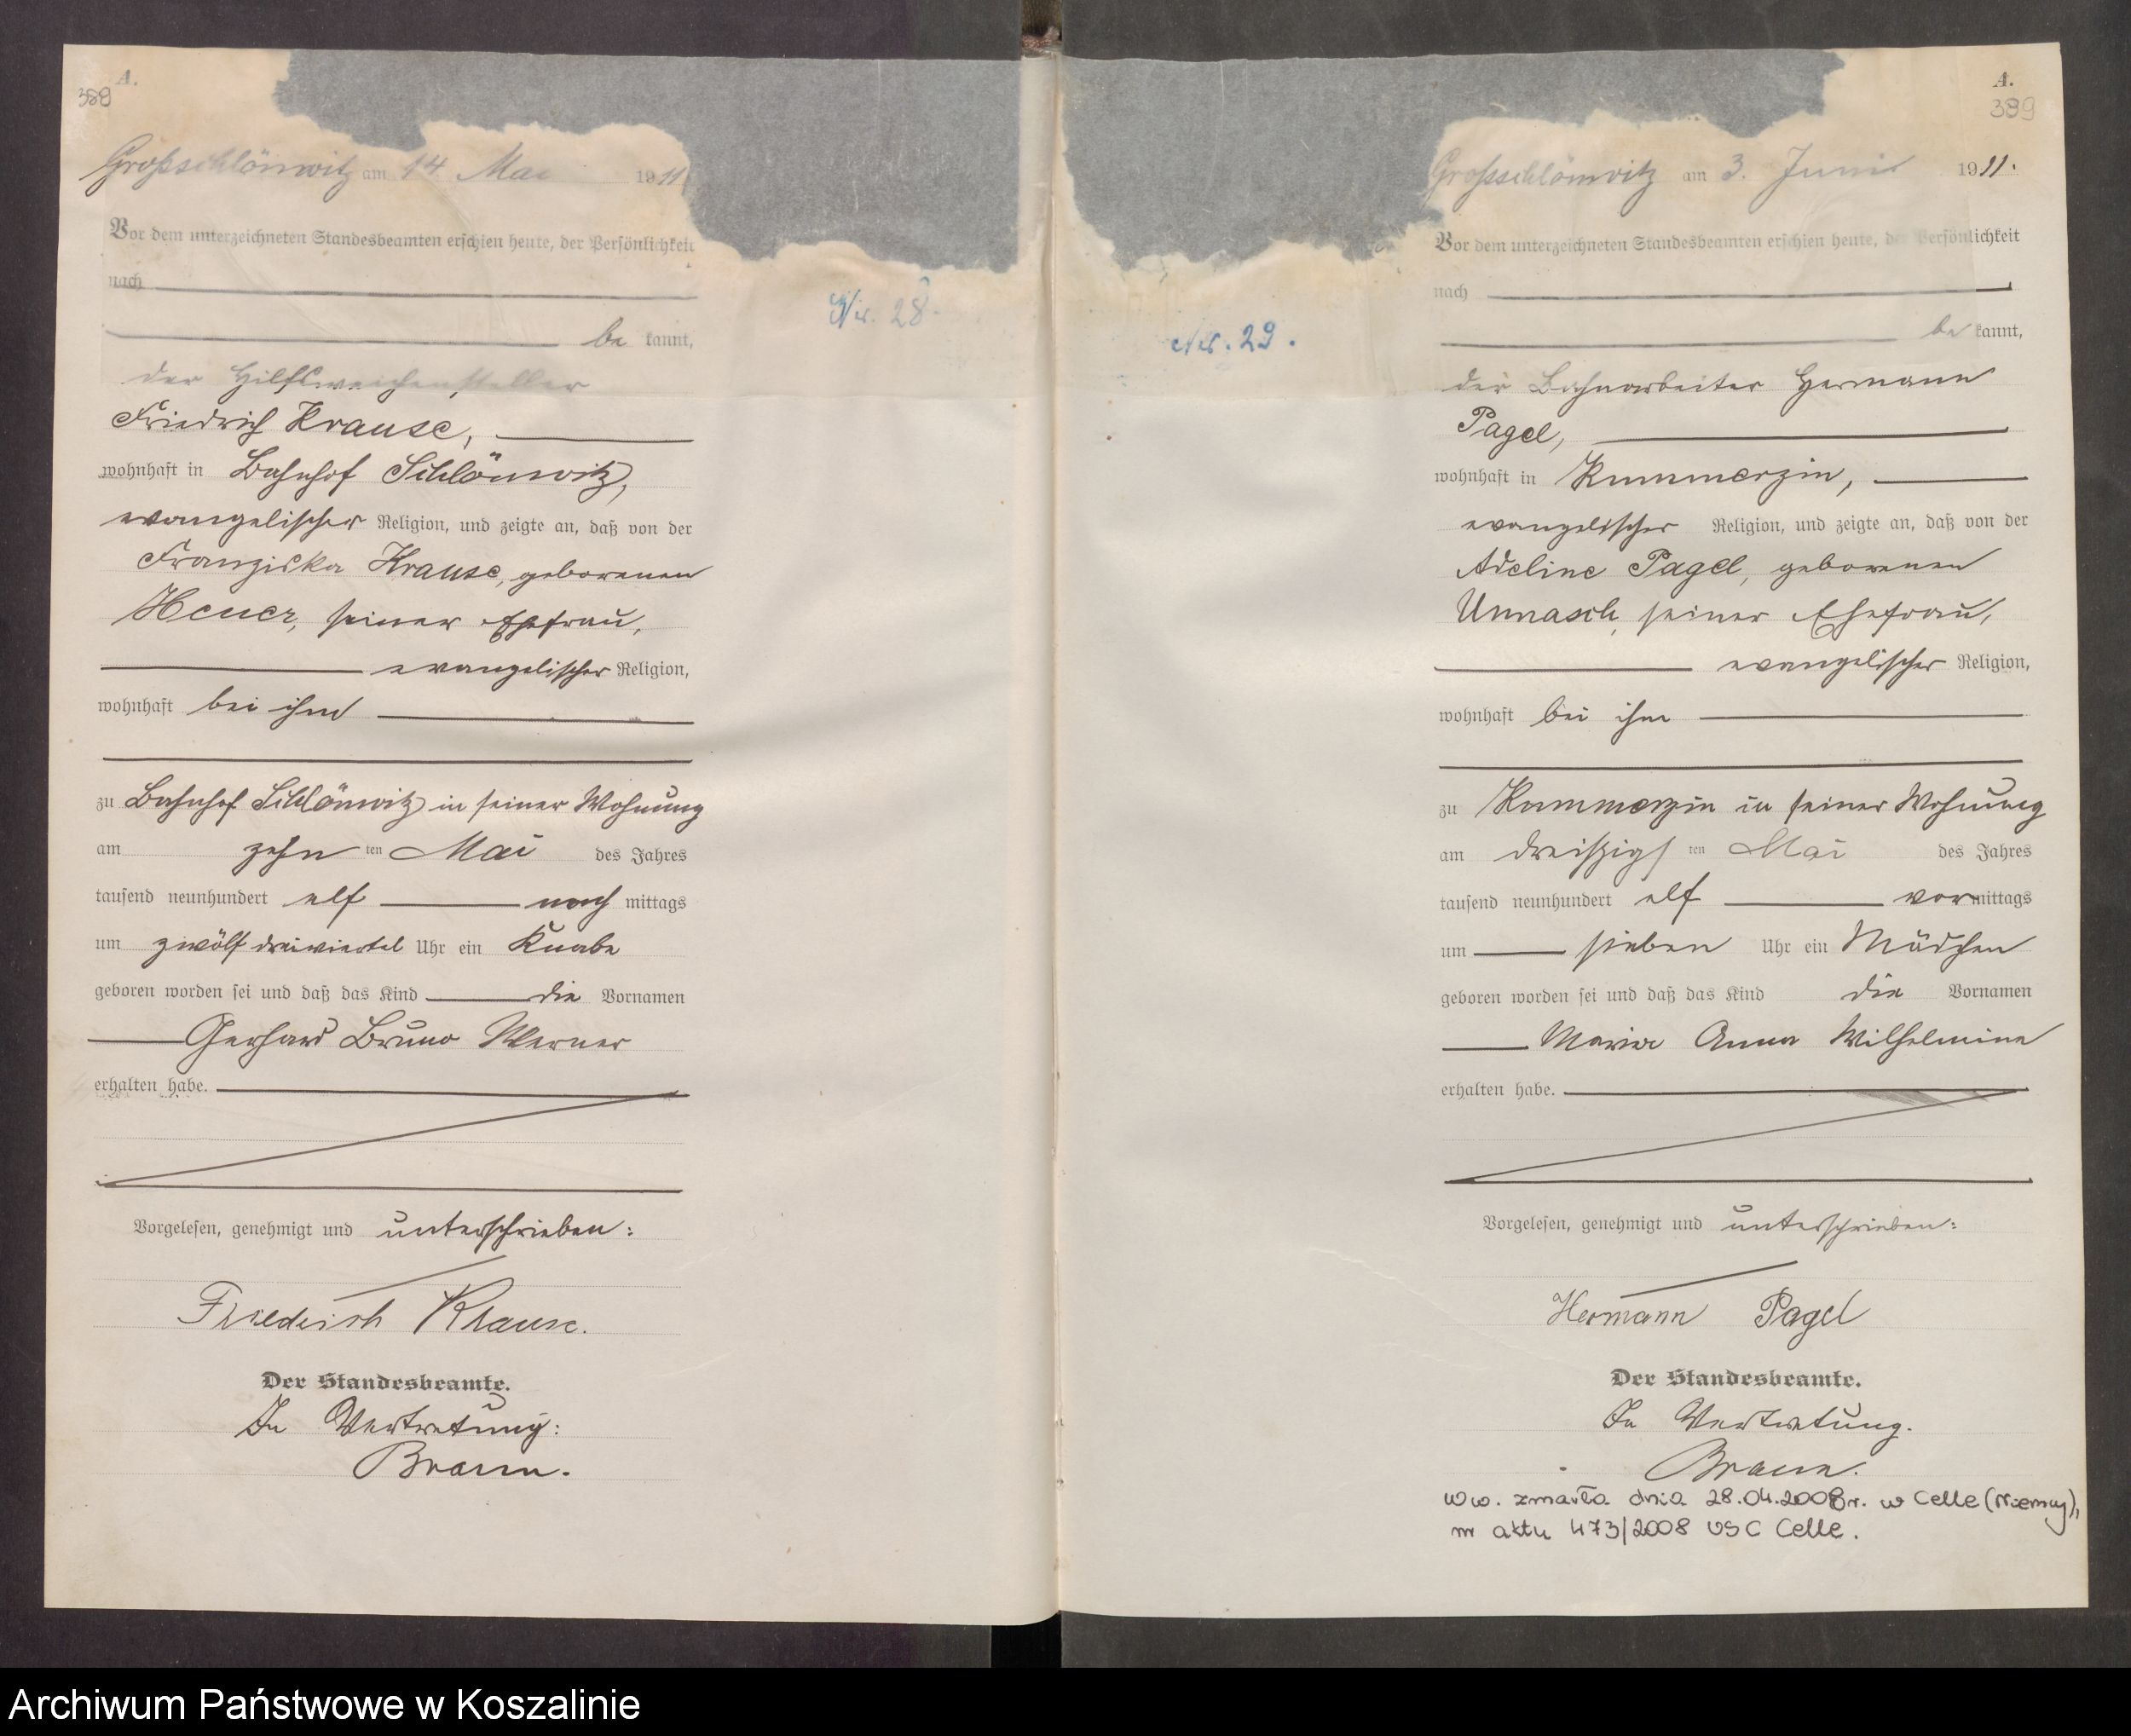 A.
389
Großschlönwitz am 14 Mai 1911
Vor dem unterzeichneten Standesbeamten erschien heute, der Persönlichkeit
nach
be kannt,
der Hilfsweichensteller
Friedrich Krause,
wohnhaft in Bahnhof Schlönwitz,
evangelischer Religion, und zeigte an, daß von der
Franziska Krause, geborenen
Heuer, seiner Ehefrau,
evangelischer Religion,
wohnhaft bei ihm
zu Bahnhof Schlönwitz in seiner Wohnung
am zehn ten Mai des Jahres
tausend neunhundert elf nach mittags
um zwölf dreiviertel Uhr ein Knabe
geboren worden sei und daß das Kind die Vornamen
Gerhard Bruno Werner
erhalten habe.
Vorgelesen, genehmigt und unterschrieben:
Friedrich Krause.
Der Standesbeamte.
In Vertretung:
Braun.
Nr. 28.
A.
389
Nr. 29.
Großschlönwitz am 3. Juni 1911.
Vor dem unterzeichneten Standesbeamten erschien heute, der Persönlichkeit
nach
be kannt,
der Bahnarbeiter Hermann
Pagel,
wohnhaft in Kummerzin,
evangelischer Religion, und zeigte an, daß von der
Adeline Pagel, geborenen
Unnasch, seiner Ehefrau,
evangelischer Religion,
wohnhaft bei ihm
zu Kummerzin in seiner Wohnung
am dreißigs ten Mai des Jahres
tausend neunhundert elf vor mittags
um sieben Uhr ein Mädchen
geboren worden sei und daß das Kind die Vornamen
Marie Anna Wilhelmine
erhalten habe.
Vorgelesen, genehmigt und unterschrieben:
Hermann Pagel
Der Standesbeamte.
In Vertretung.
Braun.
Ww. zmarła dnia 28.04.2008 r. w Celle (Niemcy),
nr aktu 473/2008 USC Celle.
Archiwum Państwowe w Koszalinie